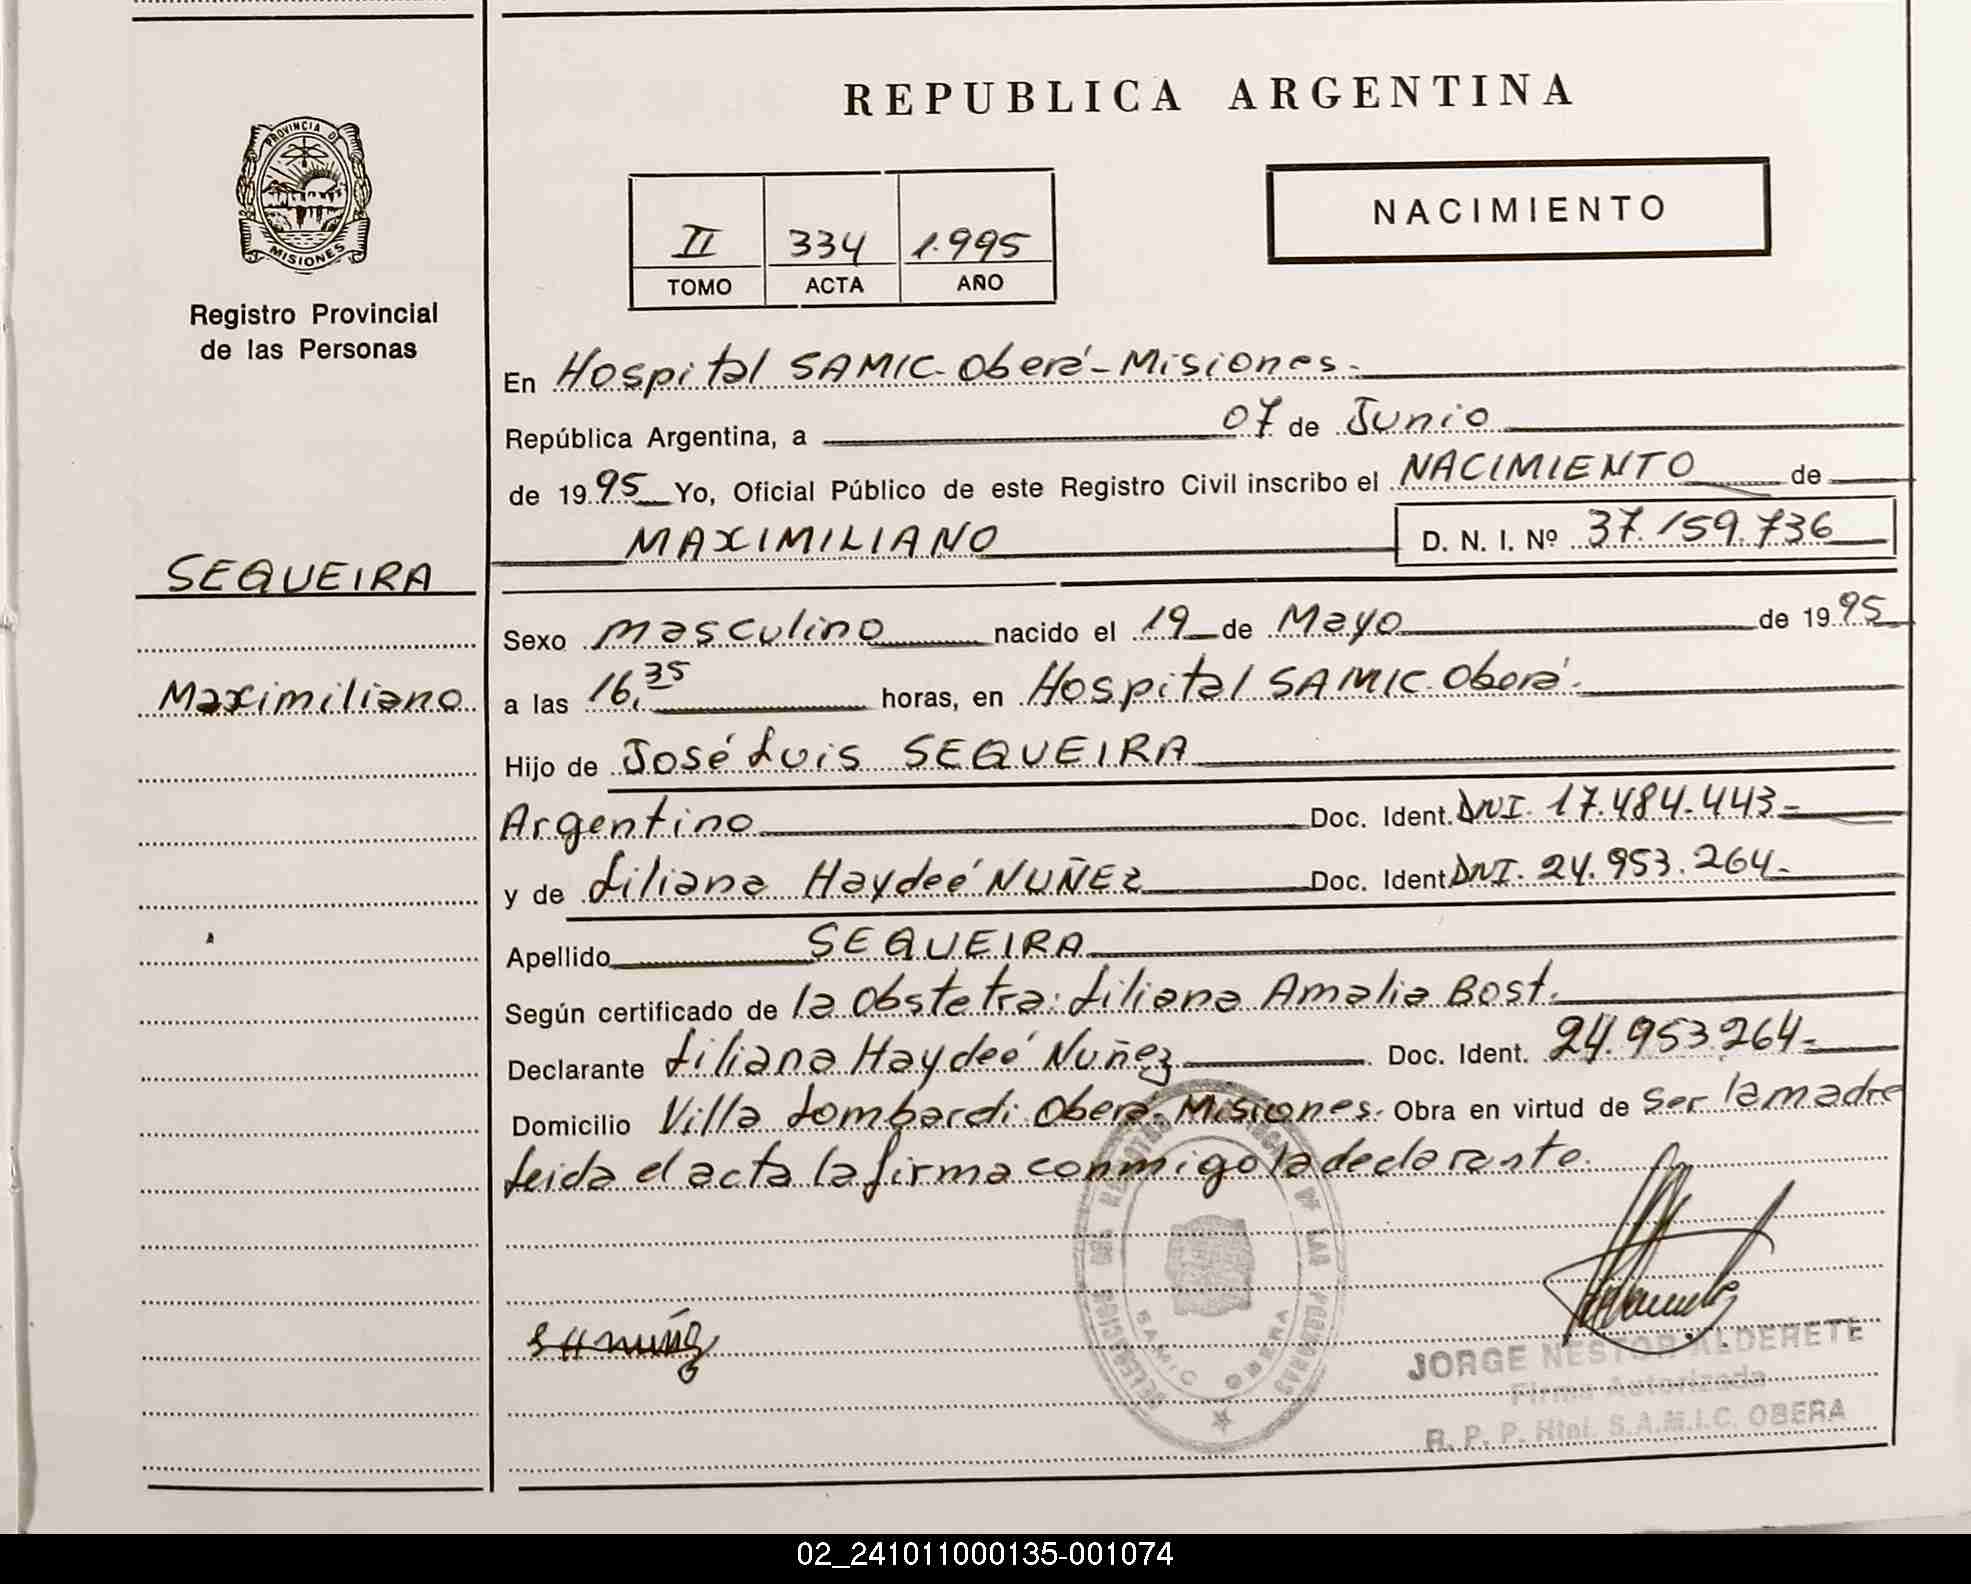 REPUBLICA ARGENTINA
PROVINCIA DE MISIONES
Registro Provincial
de las Personas
NACIMIENTO
II 334 1.995
TOMO ACTA AÑO
En Hospital SAMIC-Oberá-Misiones.
República Argentina, a 07 de Junio
de 1995 Yo, Oficial Público de este Registro Civil inscribo el NACIMIENTO de
MAXIMILIANO D. N. I. Nº 37.159.736
SEQUEIRA
Maximiliano
Sexo masculino nacido el 19 de Mayo de 1995
a las 16,35 horas, en Hospital SAMIC-Oberá.
Hijo de José Luis SEQUEIRA
Argentino Doc. Ident. DNI. 17.484.443-
y de Liliana Haydeé NUÑEZ Doc. Ident. DNI. 24.953.264-
Apellido SEQUEIRA
Según certificado de la Obstetra: Liliana Amalia Bost.
Declarante Liliana Haydeé Nuñez Doc. Ident. 24.953.264-
Domicilio Villa Lombardi Oberá-Misiones. Obra en virtud de ser la madre
Leida el acta la firma conmigo la declarante.
DE LAS PERSONAS
SAMIC OBERA
JORGE NESTOR ALDERETE
Firma Autorizada
R. P. P. Htal. S.A.M.I.C. OBERA
02_241011000135-001074